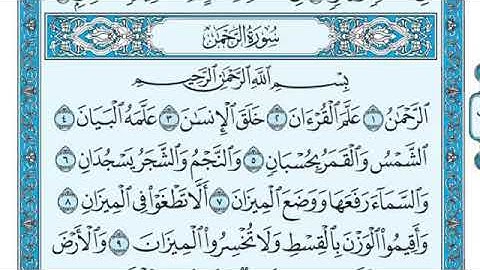 سُورَةُ الرَّحْمَٰن
بِسْمِ ٱللَّهِ ٱلرَّحْمَٰنِ ٱلرَّحِيمِ
ٱلرَّحْمَٰنُ ١ عَلَّمَ ٱلْقُرْءَانَ ٢ خَلَقَ ٱلْإِنسَٰنَ ٣ عَلَّمَهُ ٱلْبَيَانَ ٤
ٱلشَّمْسُ وَٱلْقَمَرُ بِحُسْبَانٍ ٥ وَٱلنَّجْمُ وَٱلشَّجَرُ يَسْجُدَانِ ٦
وَٱلسَّمَآءَ رَفَعَهَا وَوَضَعَ ٱلْمِيزَانَ ٧ أَلَّا تَطْغَوْا۟ فِى ٱلْمِيزَانِ ٨
وَأَقِيمُوا۟ ٱلْوَزْنَ بِٱلْقِسْطِ وَلَا تُخْسِرُوا۟ ٱلْمِيزَانَ ٩ وَٱلْأَرْضَ